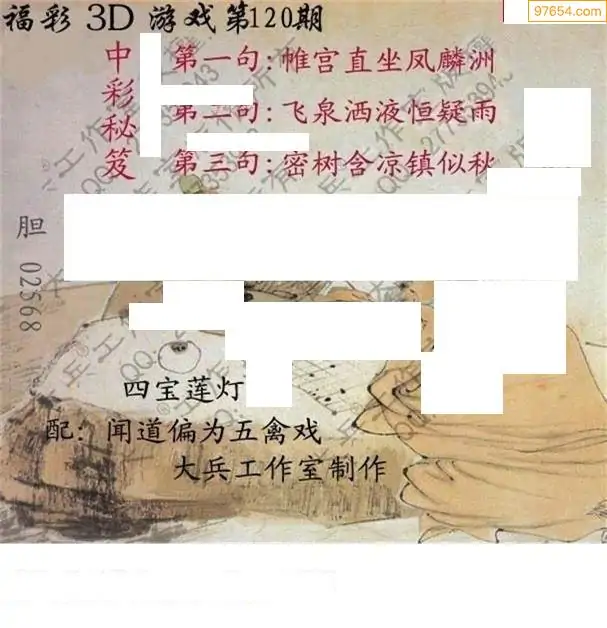 97654.com
福彩3D游戏第120期
中彩秘笈
第一句:帷宫直坐凤麟洲
第二句:飞泉洒液恒疑雨
第三句:密树含凉镇似秋
胆 02568
四宝莲灯
配:闻道偏为五禽戏
大兵工作室制作